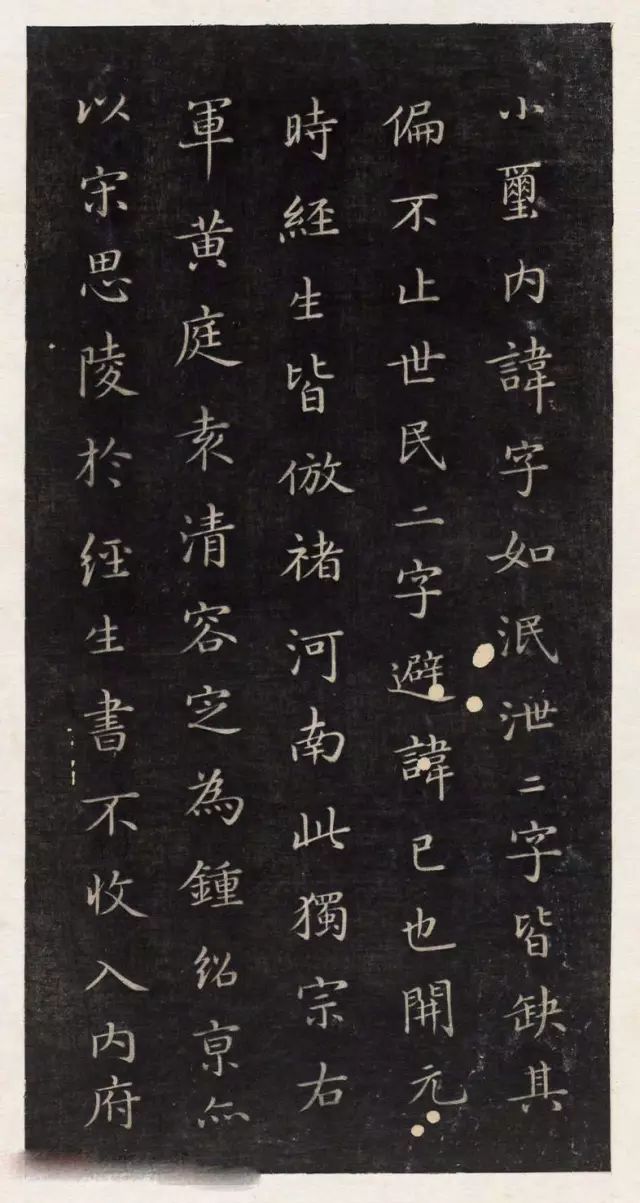 小璽内諱字如泯泄二字皆缺其
偏不止世民二字避諱已也開元
時経生皆倣褚河南此獨宗右
軍黄庭袁清容定為鍾紹京亦
以宋思陵於経生書不收入内府